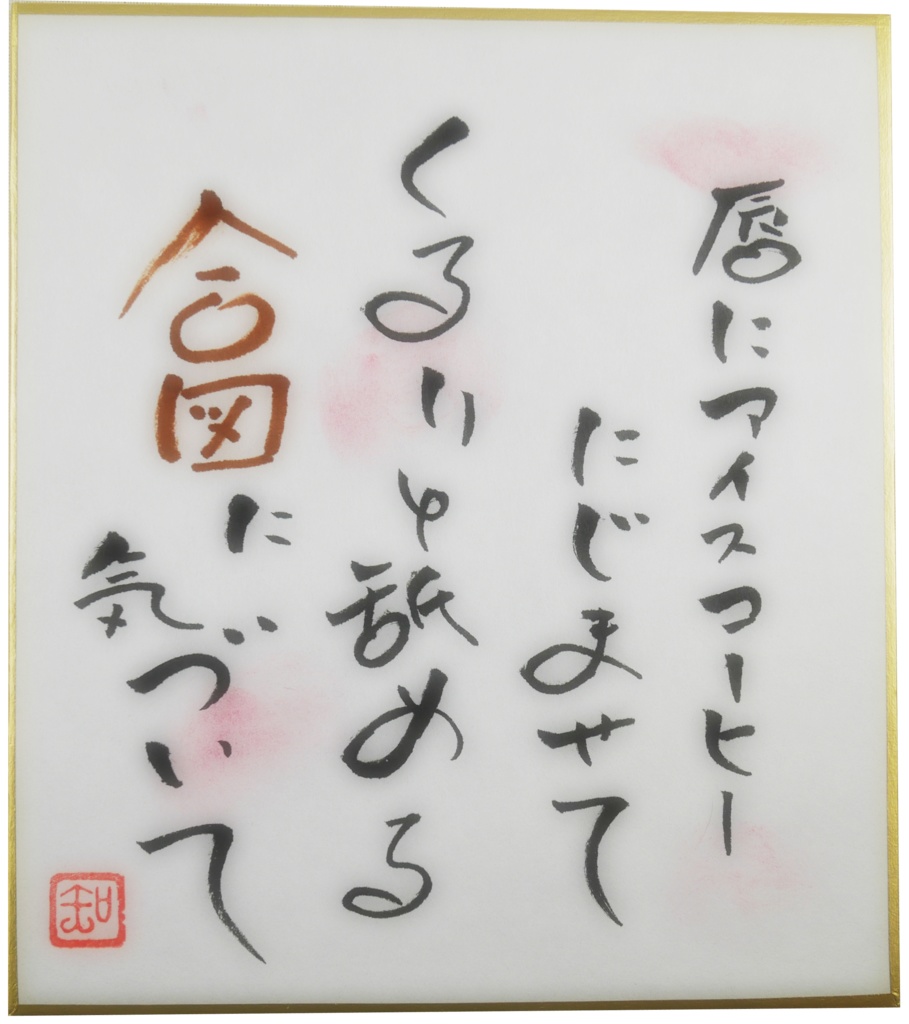 唇にアイスコーヒー
にじませて
くるりと舐める
合図に
気づいて